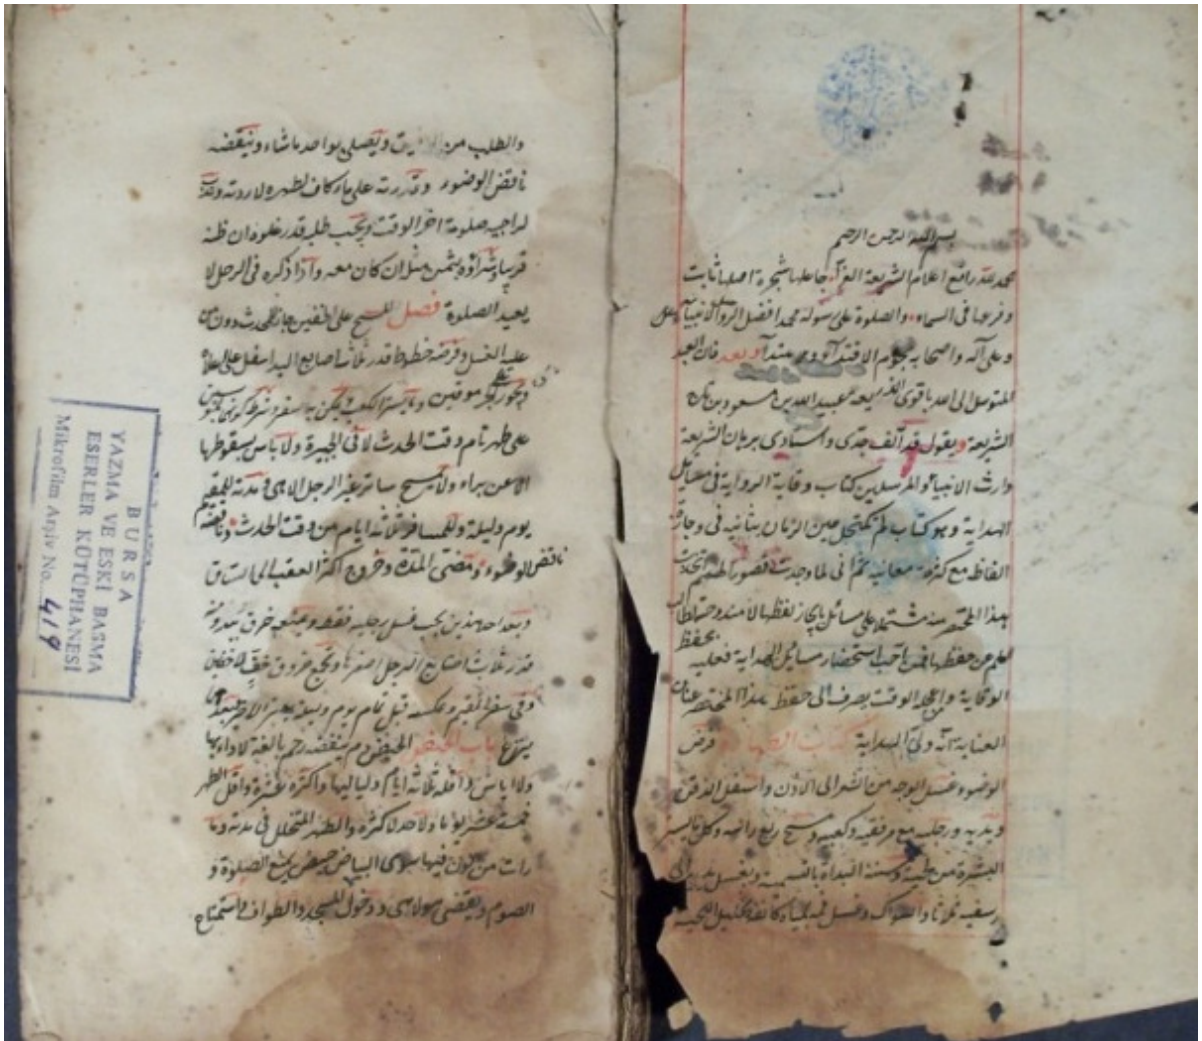 بسم الله الرحمن الرحيم
حمد لله رافع اعلام الشريعة الغراء جاعلها شجرة اصلها ثابت
وفرعها فى السماء والصلوة على رسوله محمد افضل الرسل والانبياء
وعلى آله واصحابه نجوم الاقتداء والاهتداء وبعد فان العبد
المتوسل الى الله باقوى الذريعة عبيد الله بن مسعود بن تاج
الشريعة يقول قد الف جدى واستادى برهان الشريعة
وارث الانبياء والمرسلين كتاب وقاية الرواية فى مسائل
الهداية وهو كتاب لم تكتحل عين الزمان بثانيه فى وجازة
الفاظه مع كثرة معانيه ثم انى لما وجدت قصور الهمم
بهذا المختصر منه مشتملا على مسائل
عن حفظها فمن احب استحضار مسائل الهداية فعليه بحفظ
الوقاية ومن اعجله الوقت يصرف الى حفظ هذا المختصر عنان
العناية انه ولى الهداية كتاب الطهارة فرض
الوضوء غسل الوجه من الشعر الى الاذن واسفل الذقن
ويديه ورجليه مع مرفقيه وكعبيه ومسح ربع راسه وكل ما يستر
البشرة من لحيته وسنته البداءة بالتسمية وبغسل يديه الى
رسغيه ثلاثا والسواك وغسل فمه بمياه كانفه وتخليل اللحية
والطلب من ويصلى بواحد ما شاء وينقضه
ناقض الوضوء وقدرته على ماء كاف لطهره لا ردته وندب
لراجيه صلوته آخر الوقت ويجب طلبه قدر غلوة ان ظنه
قريبا وشراؤه بثمن مثله ان كان معه واذا ذكره فى الرحل لا
يعيد الصلوة فصل المسح على الخفين جاز للمحدث دون من
عليه الغسل وفرضه خطوطا قدر ثلاث اصابع اليد اسفل
على طهر تام وقت الحدث لا فى الجبيرة ولا باس بسقوطها
الا عن براء ولا يمسح ساتر غير الرجل الا هى ومدته للمقيم
يوم وليلة وللمسافر ثلاثة ايام من وقت الحدث وناقضه
ناقض الوضوء ومضى المدة وخروج اكثر العقب الى الساق
وبعد احد هذين يجب غسل رجليه فقط ويمنعه خرق يبدو منه
قدر ثلاث اصابع الرجل اصغرها وتجمع خروق خف لا خفين
وفى سفر المقيم وعكسه قبل تمام يوم وليلة يعتبر الاخير
ينزع باب الحيض الحيض دم ينفضه رحم بالغة لا داء بها
ولا اياس واقله ثلاثة ايام ولياليها واكثره عشرة واقل الطهر
خمسة عشر يوما ولا حد لاكثره والطهر المتخلل فى مدته وما
رات من لون فيها سوى البياض حيض يمنع الصلوة و
الصوم ويقضى هو لا هى ودخول المسجد والطواف واستمتاع
BURSA
YAZMA VE ESKİ BASMA
ESERLER KÜTÜPHANESİ
Mikrofilm Arşiv No. 419